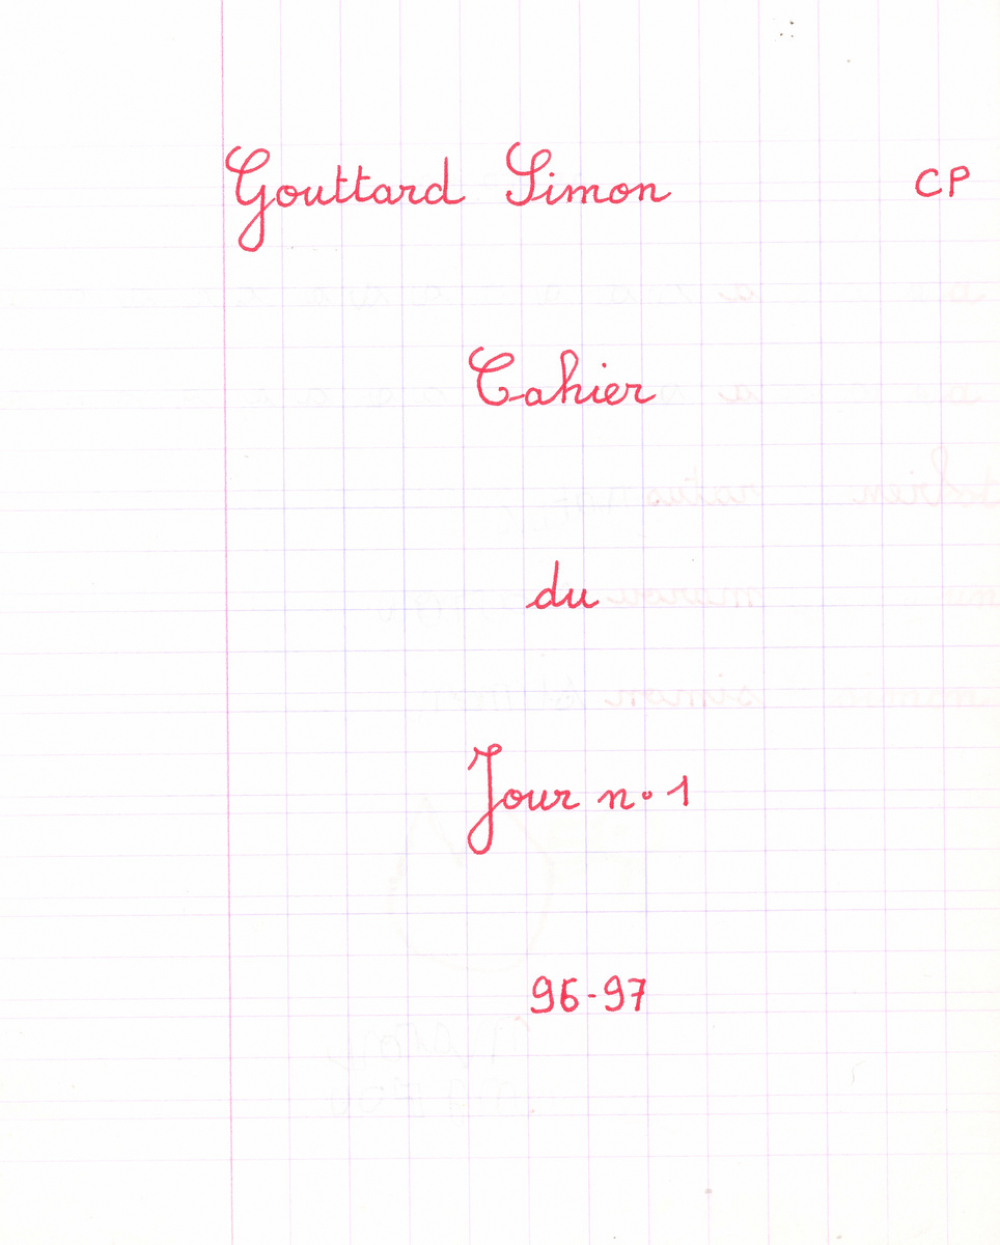 Gouttard Simon CP
Cahier
du
Jour n° 1
96-97